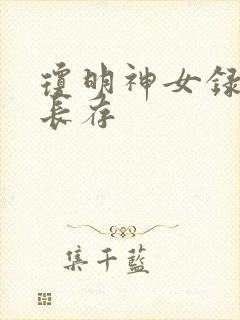 瓊明神女錄
長存
集千藍